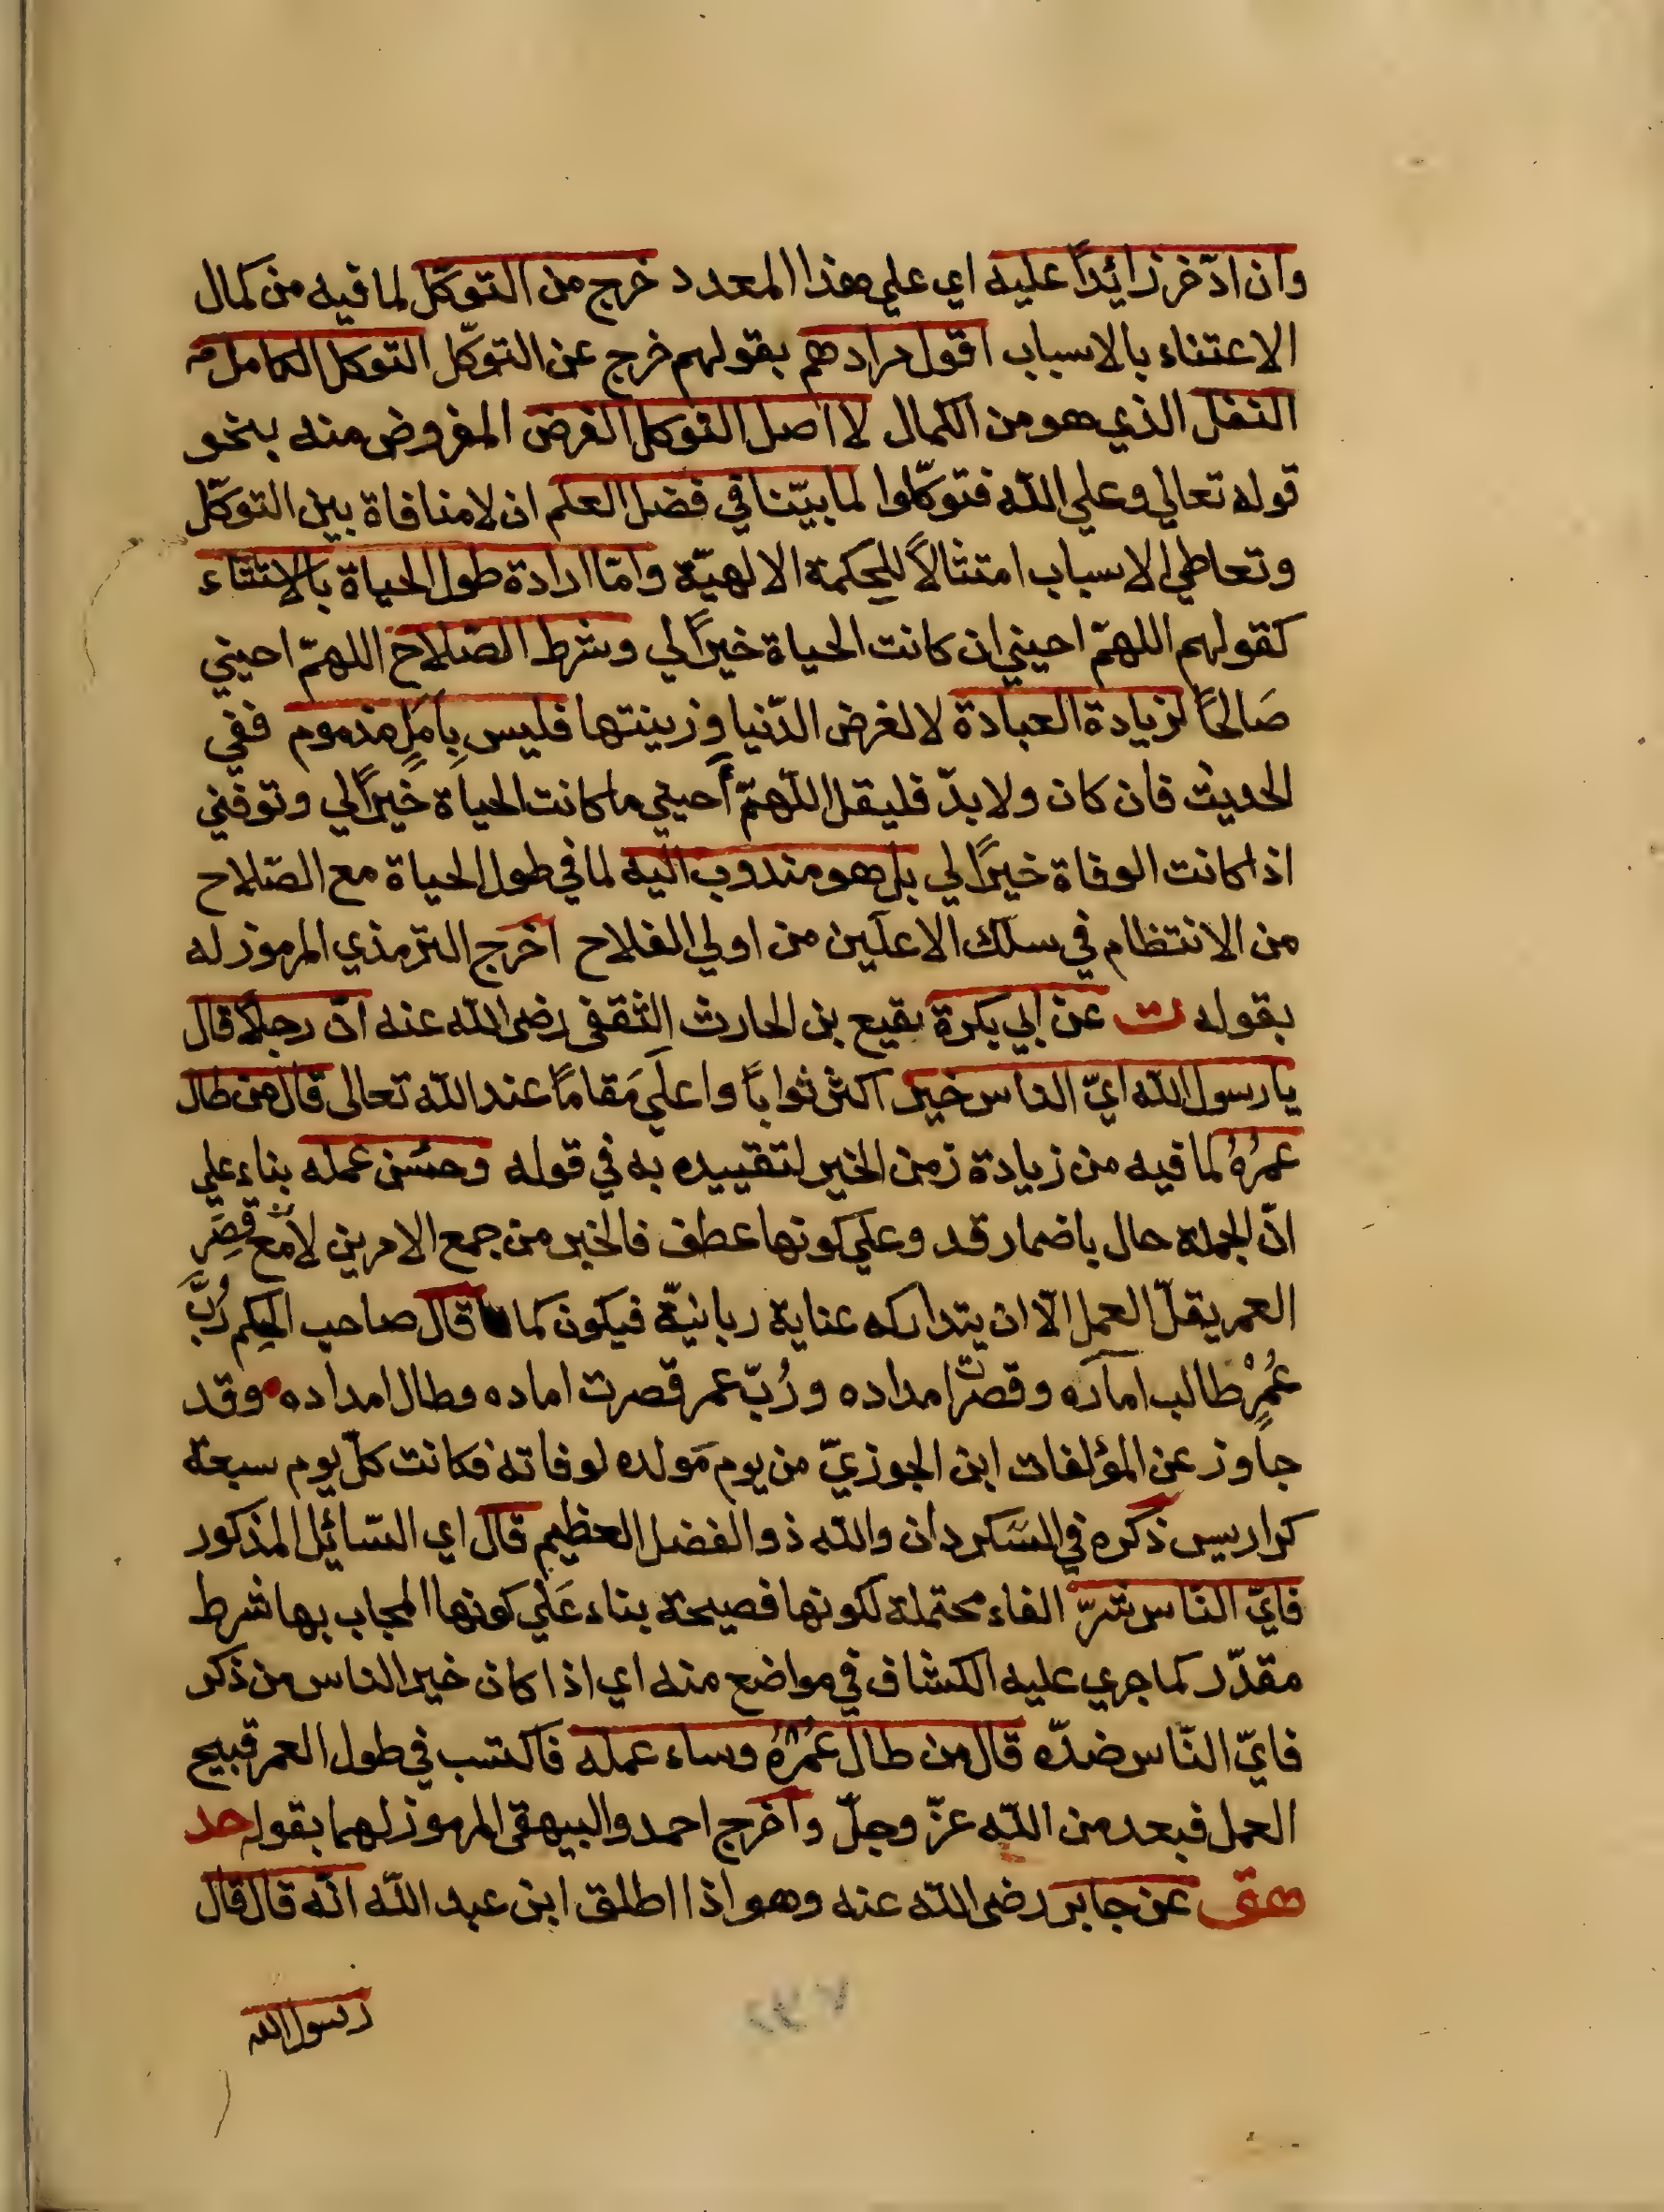 وان ادّخر زائدًا عليه اي علي هذا المعدد خرج من التوكّل لما فيه من كمال
الاعتناء بالاسباب اقول مرادهم بقولهم خرج عن التوكّل التوكل الكامل
النفل الذي هو من الكمال لا اصل التوكل الفرض المفروض منه بنحو
قوله تعالي وعلي اللّه فتوكّلوا لما بيّنا في فضل العلم ان لا منافاة بين التوكّل
وتعاطي الاسباب امتثالاً للحكمة الالهيّة وامّا ارادة طول الحياة بالاستثناء
كقولهم اللهمّ احيني ان كانت الحياة خيرًا لي وشرط الصّلاح اللهمّ احيني
صَالحًا لزيادة العبادة لا لغرض الدّنيا وزينتها فليس بِاَمَلٍ مذموم ففي
الحديث فان كان ولا بدّ فليقل اللّهمّ اَحيني ما كانت الحياة خيرًا لي وتوفّني
اذا كانت الوفاة خيرًا لي بل هو مندوب اليه لما في طول الحياة مع الصّلاح
من الانتظام في سلك الاعلَين من اولي الفلاح اخرج الترمذي المرموز له
بقوله ت عن ابي بكرة بقيع بن الحارث الثقفى رضى اللّه عنه انّ رجلًا قال
يا رسول اللّه ايّ الناس خير اكثر ثوابًا واعلَي مَقامًا عند اللّه تعالى قال من طال
عمرُهُ لما فيه من زيادة زمن الخير لتقييده به في قوله وحسُن عمله بناء علي
انّ الجملة حال باضمار قد وعلي كونها عطف فالخير من جمع الامرين لا مع قِصَرِ
العمر يقلّ العمل الّا ان يتداركه عناية ربانيّة فيكون كما قال صاحب الحِكم رُبَّ
عُمرٍ طالب اماده وقصرت امداده ورُبّ عمر قصرت اماده وطال امداده وقد
جاوز عن المؤلفات ابن الجوزيّ من يوم مَولده لوفاته فكانت كلّ يوم سبعة
كراريس ذكره في السّكردان واللّه ذو الفضل العظيم قال اي السّائِل المذكور
فايّ النّاس شرّ الفاء محتملة لكونها فصيحة بناء عَلي كونها المجاب بها شرط
مقدّر كما جري عليه الكشاف في مواضع منه اي اذا كان خير الناس من ذكر
فايّ النّاس ضدّه قال من طال عُمُرُهُ وساء عمله فاكتسب في طول العمر قبيح
العمل فبعد من اللّه عزّ وجلّ واخرج احمد والبيهقى المرموز لهما بقوله حد
هقى عن جابر رضى اللّه عنه وهو اذا اطلق ابن عبد اللّه انّه قال قال
رسول الله